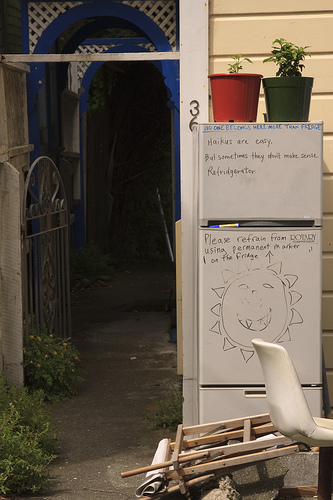 36
NO ONE BELONGS HERE MORE THAN FRIDGE
Haikus are easy.
But sometimes they don't make sense
Refridgerator.
Please refrain from
using permanent marker
on the fridge